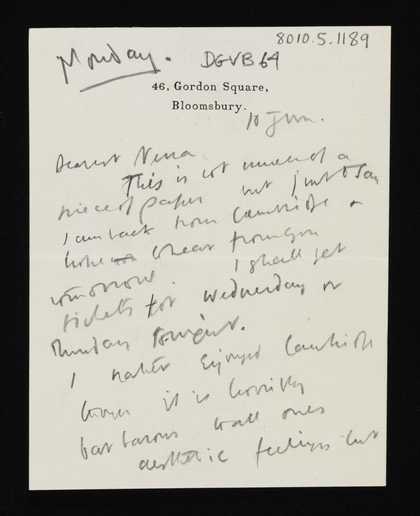 8010.5.1189
Monday. DGVB64
46, Gordon Square,
Bloomsbury.
10 Jun.
Dearest
This is not much of a
piece of paper but just to say
I am back from Cambridge &
hope to hear from you
tomorrow. I shall get
tickets for Wednesday or
Thursday tonight.
I rather enjoyed Cambridge
it is horribly
barbarous wall ones
aesthetic feelings but